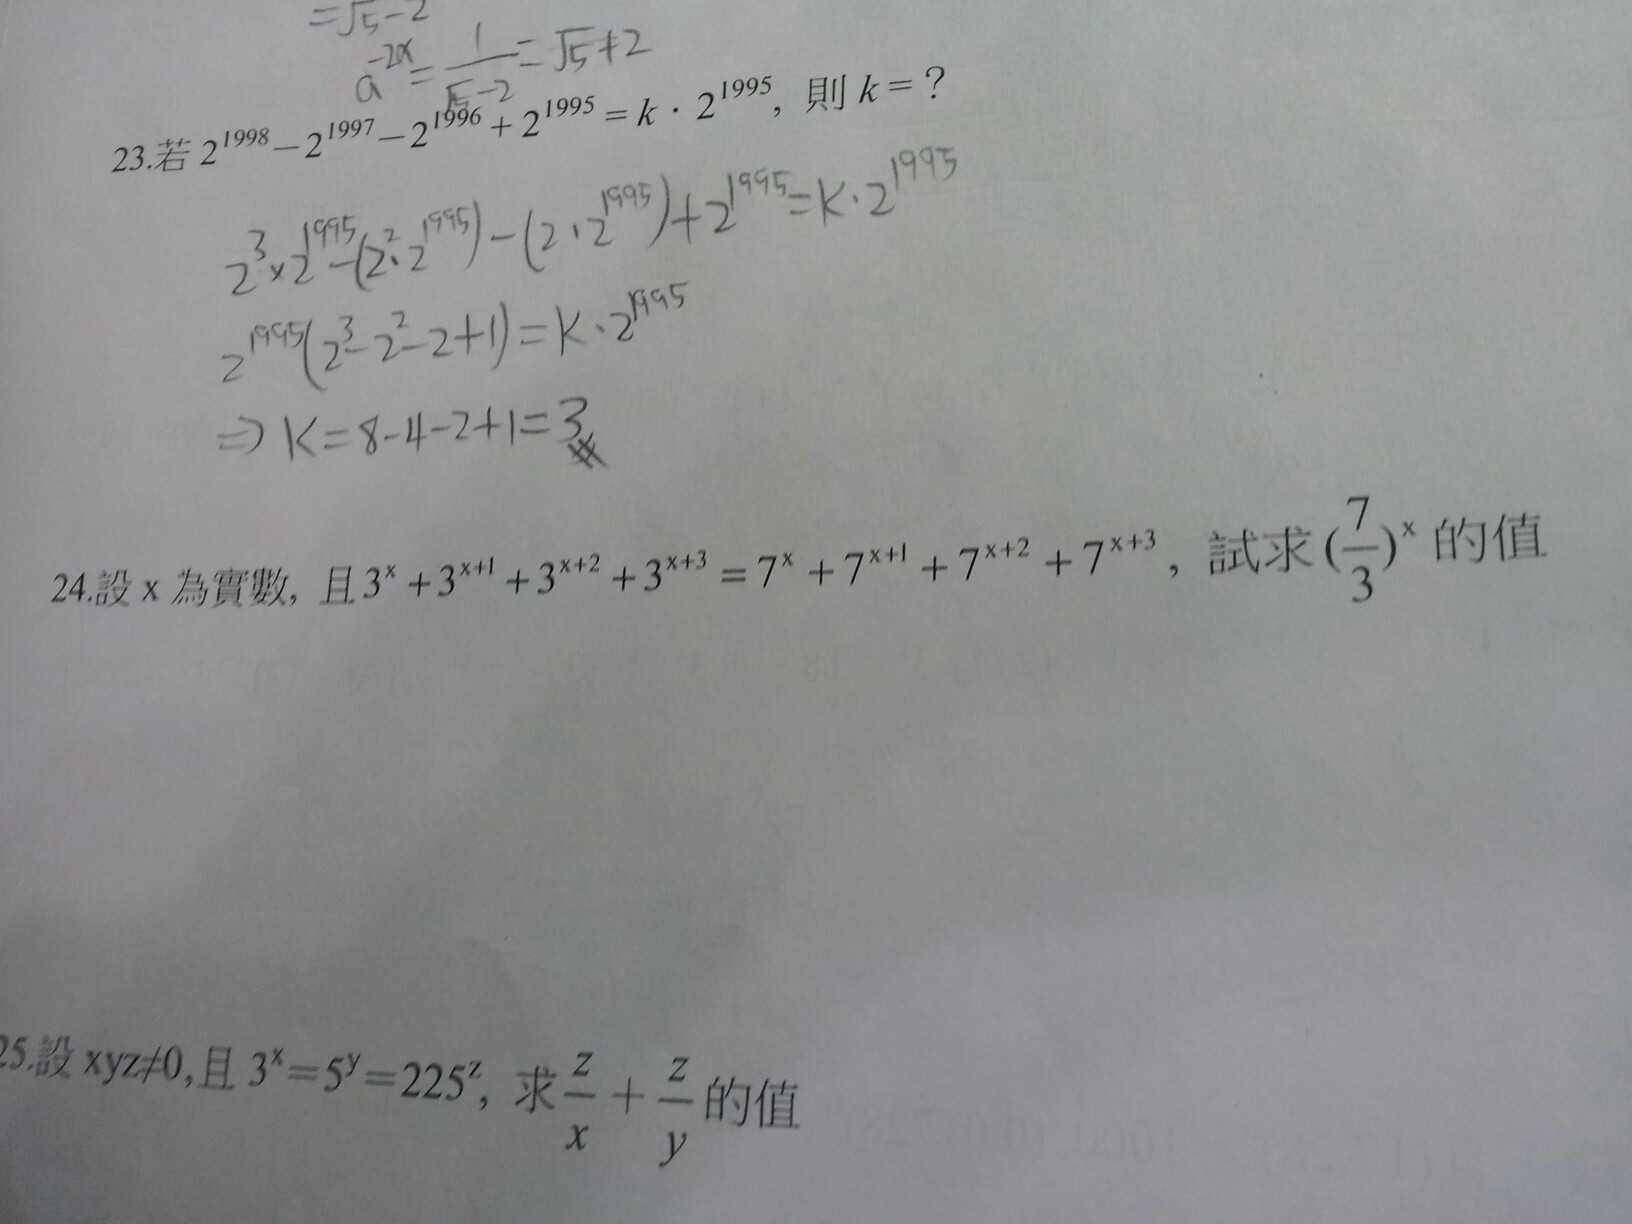 =√5-2
a^{-2x}=\frac{1}{√5-2}=√5+2
23.若 2^{1998}-2^{1997}-2^{1996}+2^{1995}=k·2^{1995}, 則 k=?
2^3×2^{1995}-(2^2·2^{1995})-(2·2^{1995})+2^{1995}=K·2^{1995}
2^{1995}(2^3-2^2-2+1)=K·2^{1995}
⇒K=8-4-2+1=3
24.設 x 為實數, 且3^x+3^{x+1}+3^{x+2}+3^{x+3}=7^x+7^{x+1}+7^{x+2}+7^{x+3}, 試求(\frac{7}{3})^x 的值
25.設 xyz≠0,且 3^x=5^y=225^z, 求\frac{z}{x}+\frac{z}{y}的值